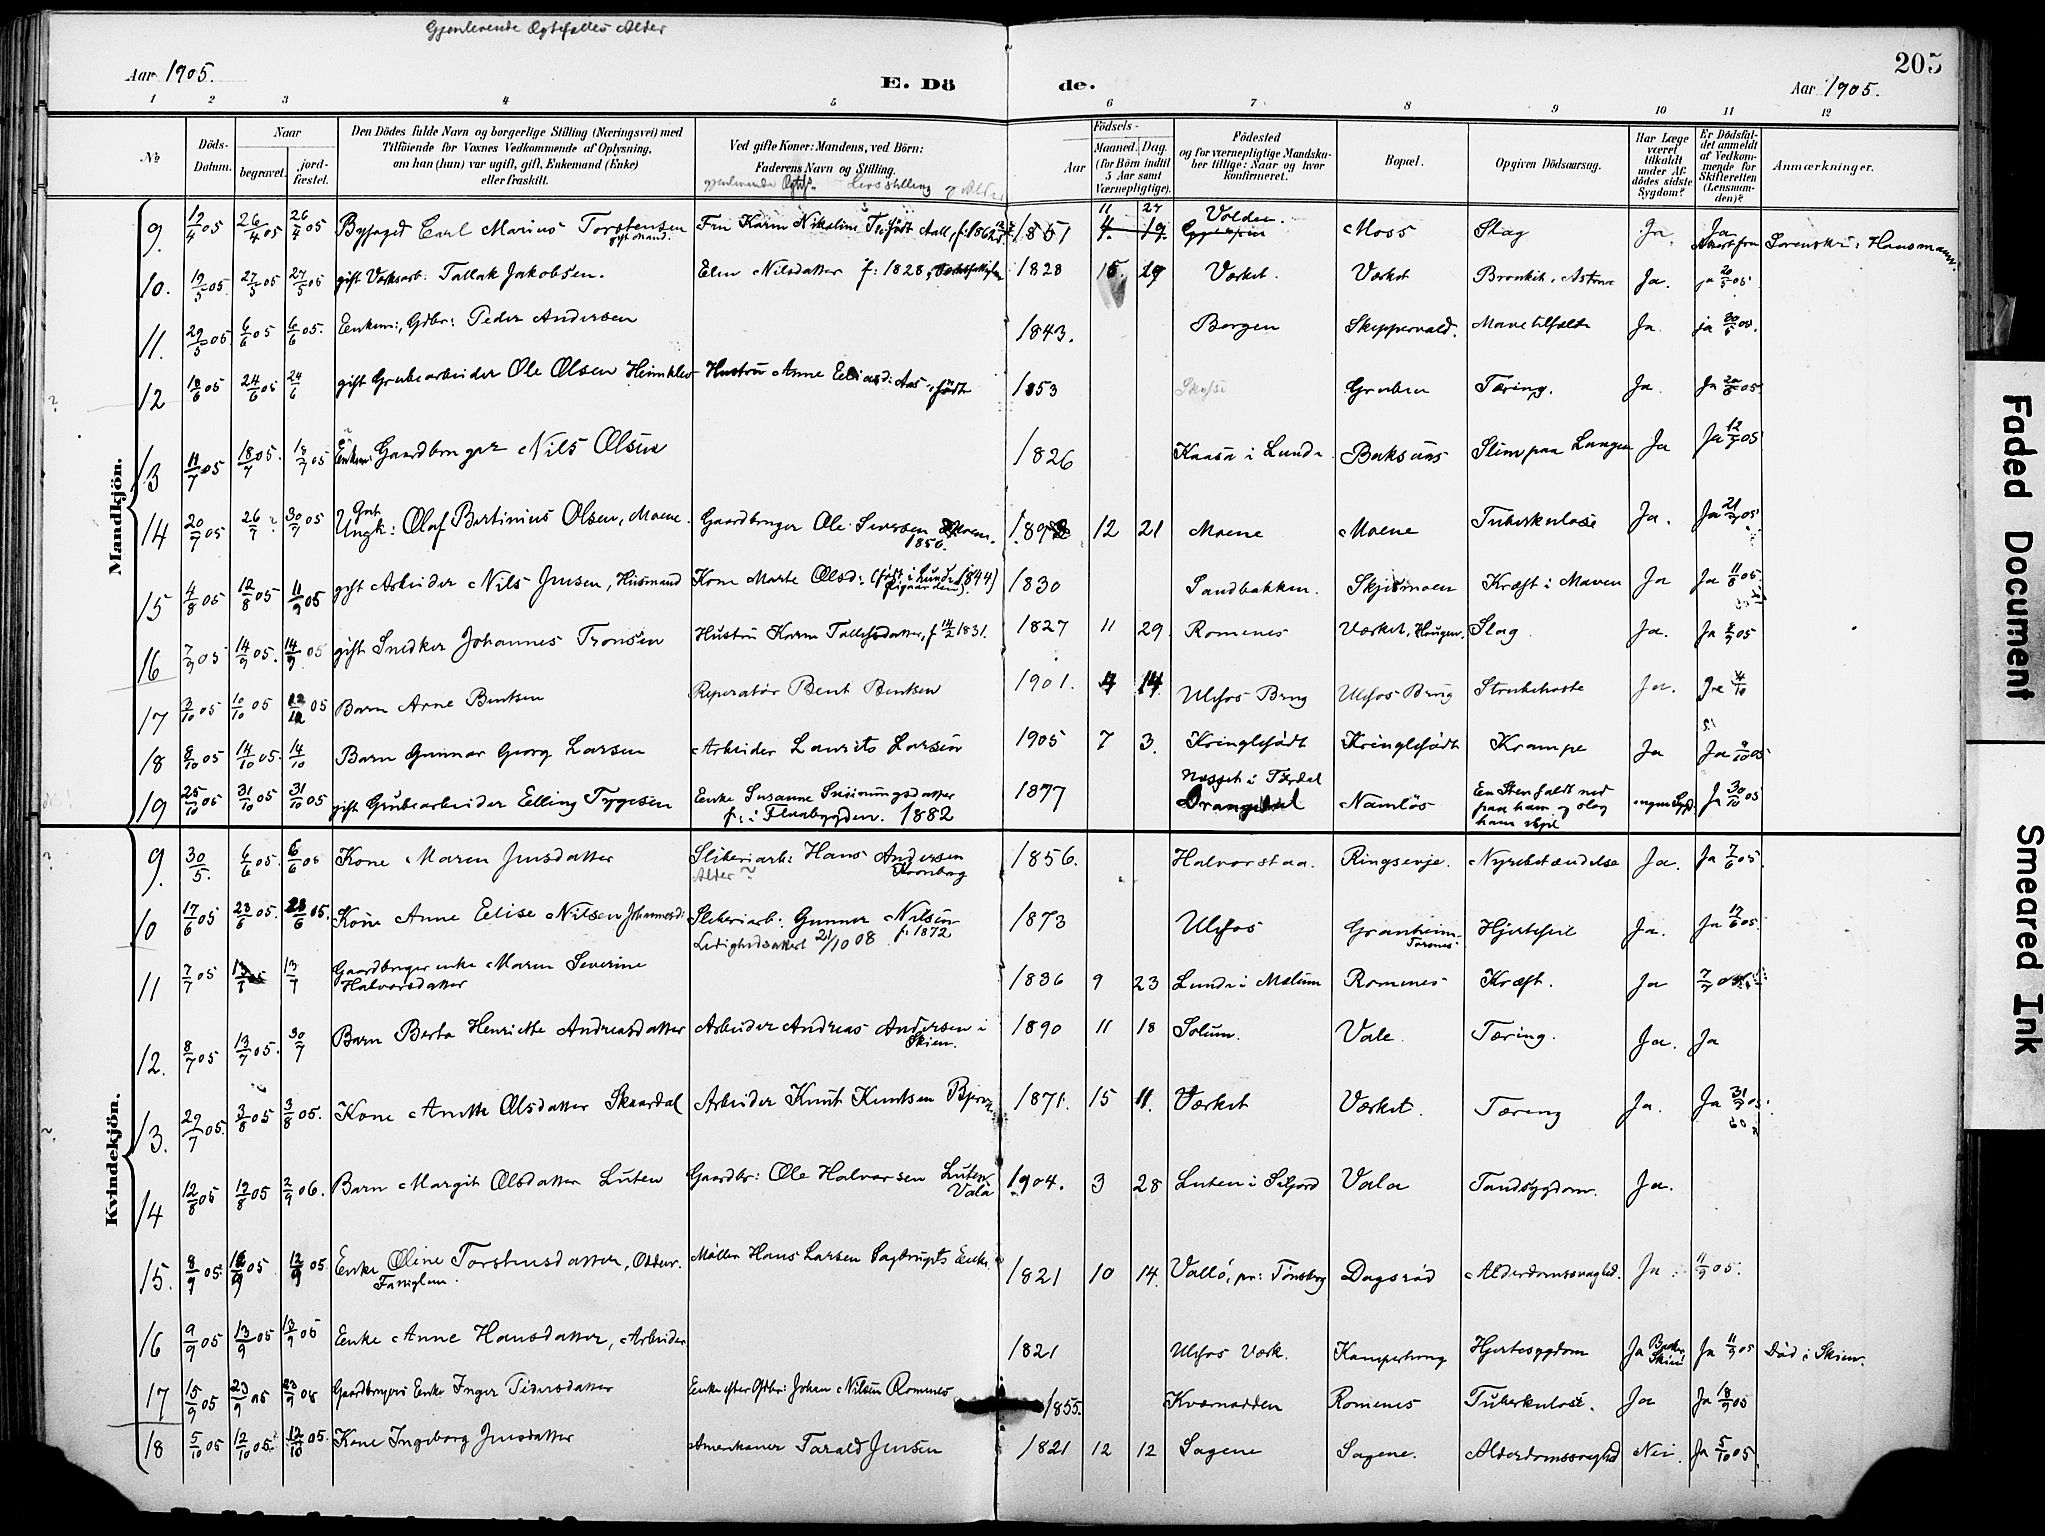 Gjenlevende Ægtefælles Alder
Aar 1905.
E. Döde.
Aar 1905.
205
1 2 3 4 5 6 7 8 9 10 11 12
No
Döds-Datum.
Naar
begravet.
jord-fæstet.
Den Dödes fulde Navn og borgerlige Stilling (Næringsvei) med
Tilföiende for Voxnes Vedkommende af Oplysning,
om han (hun) var ugift, gift, Enkemand (Enke)
eller fraskilt.
Ved gifte Koner: Mandens, ved Börn:
Faderens Navn og Stilling.
gjenlevende Livsstilling
Födsels-
Aar
Maaned. Dag.
(for Börn indtil
5 Aar samt
Værnepligtige).
Födested
og for værnepligtige Mandsku-
ber tillige: Naar og hvor
konfirmeret.
Bopæl.
Opgiven Dödsaarsag.
Har Læge
været
tilkaldt
under Af-
dödes sidste
Sygdom?
Er Dödsfal-
det anmeldt
af Vedkom-
mende for
Skifteretten
(Lensman-
den)?
Anmærkninger.
Mandkjön.
9. 12/4 05 26/4 05 26/4 05 Byfoged Carl Marius Torstensen gift Mand. Fru Karin Nikoline født Aall, f. 1862 1851 11 27 Volden Moss Slag Ja. Ja
10. 19/5 05 27/5 05 27/5 05 gift Verksarb: Tallak Jakobsen. Elen Nilsdatter f: 1828, 1828 15. 29 Værket. Værket Bronkit, Astma Ja. ja 20/5 05
11. 29/5 05 6/6 05 6/6 05. Enkem:, Gdbr: Peder Andersen 1843. Borgen Skippervold. Mavetilfælde Ja. ja 30/5 05.
12 18/6 05 24/6 05 24/6 gift Grubearbeider Ole Olsen Heimklev Hustru Anne Eliasd: Aas, født 1853 Grubra Tæring. Ja. Ja 20/6 05
13 11/7 05 18/7 05. 18/7 05 Enkem: Gaardbruger Nils Olsen 1826 Kaasa i Lunde Baksaas Slim paa Lungen Ja Ja 12/7 05
14 20/7 05 26/7 30/7 05 Ungk: Gut Olaf Bertinius Olsen, Moene. Gaardbruger Ole Seversen Moene. 1850. 12 21 Moene Moene Tuberkulose Ja. Ja 21/7 05
15 4/8 05 12/8 05 11/9 05 gift Arbeider Nils Jensen, Husmand Kone Marte Olsd: (født i Lunde 1844) 1830 Sandbakken. Skjesmoen Kræft i Maven Ja Ja 11/8 05.
16 7/9 05 14/9 05. 14/9 05 gift Snedker Johannes Tronsen Hustru Karen Tallefsdatter, f 14/2 1831. 1827 11 29. Romenes Værket, Haugen. Slag. Ja. Ja 8/9 05
17 3/10 05 10/10 05 12/10 05 Barn Arne Bentsen Reperatør Bent Bentsen 1901. 4 14 Ulefos Brug Ulefos Brug Strubehoste Ja. Ja 4/10
18 8/10 05 14/10 05. 14/10 Barn Gunnar Georg Larsen Arbeider Laurits Larsen 1905 7 3. Kringlefødt Kringlefødt Krampe Ja Ja 9/10 05
19 25/10 05 31/10 05 31/10 05 gift Grubearbeider Elling Tygesen Enke Susanne f: i Flaabygden. 1882 1877 Næsset i Tørdal Drangedal Namløs En Sten faldt ned paa ham og slog ham ihjel ingen Sygd. Ja 30/10 05
Kvindekjön.
9. 30/5. 6/6 05. 6/6 05 Kone Maren Jensdatter Sliberiarb: Hans Andersen Kronborg Alder ~ 1856. Halvorstaa. Ringsevje. Nyrebetændelse Ja. Ja 7/6 05
10 17/6 05 23/6 05. 23/6 05. Kone Anne Elise Nilsen Johannesd: Sliberiarb: Gunner Nilsen f: 1872 Ledighedsattest 21/10 08 1873 Ulefos Granheim Hjertefeil Ja. Ja 19/6 05.
11 7/7 05 13/7 Gaardbruger enke Maren Severine Halvorsdatter 1836 9 23 Lunde i Mælum Romenes Kræft. Ja 7/7 05
12. 8/7 05 13/7 05. 30/7 Barn Berta Henriette Andreasdatter Arbeider Andreas Andersen i Skien. 1890 11 18 Solum. Vale. Tæring. Ja. Ja
13. 29/7 05. 3/8 05 3/8 05. Kone Anette Olsdatter Skaardal Arbeider Knut Knutsen 1871. 15 11. Værket Værket. Tæring Ja. Ja 31/7 05.
14 12/8 05 19/8 05 2/9 06. Barn Margit Olsdatter Luten Gaardbr: Ole Halvorsen Luten Vala 1904. 3 28 Luten i Seljord Vala Tandsygdom. Ja.
15. 8/9 05 16/9 05 12/9 05. Enke Oline Torstensdatter, Møller Hans Larsen Enke. 1821 10 14. Vallö, pr: Tönsberg Dagsrød Alderdomssvaghed. Ja. 11/9 05.
16 9/9 05 13/9 05 13/9 05 Enke Anne Hansdatter, Arbeider 1821 Ulefos Værk. Kamperhaug Hjertesygdom Ja Skien Ja 11/9 05 Død i Skien.
17 15/9 05 23/9 05 23/9 05 Gaardbrugers Enke Inger Pedersdatter Enke efter Gdbr: Johan Nilsen Romenes 1855. Kværnodden Romenes Tuberkulose. Ja Ja 18/9 05
18 5/10 05 12/10 05. 12/10 05. Kone Ingeborg Jensdatter Amerikaner Tarald Jensen 1821 12 12 Sagene Sagene. Alderdomssvaghed Nei. Ja 5/10 05
Faded Document
Smeared Ink